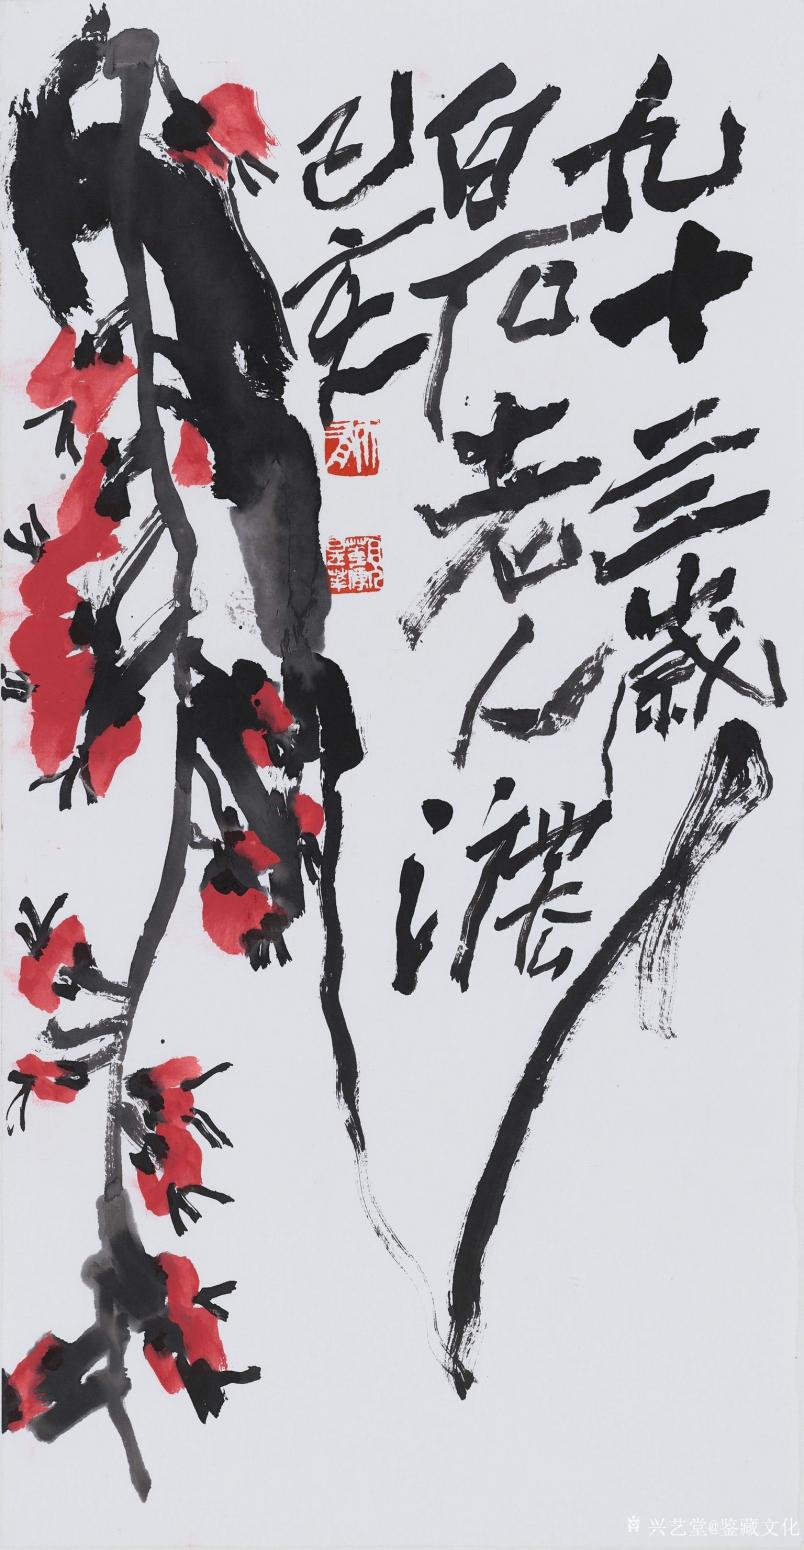 九十三歲
白石老人
己亥
兴艺堂@鉴藏文化